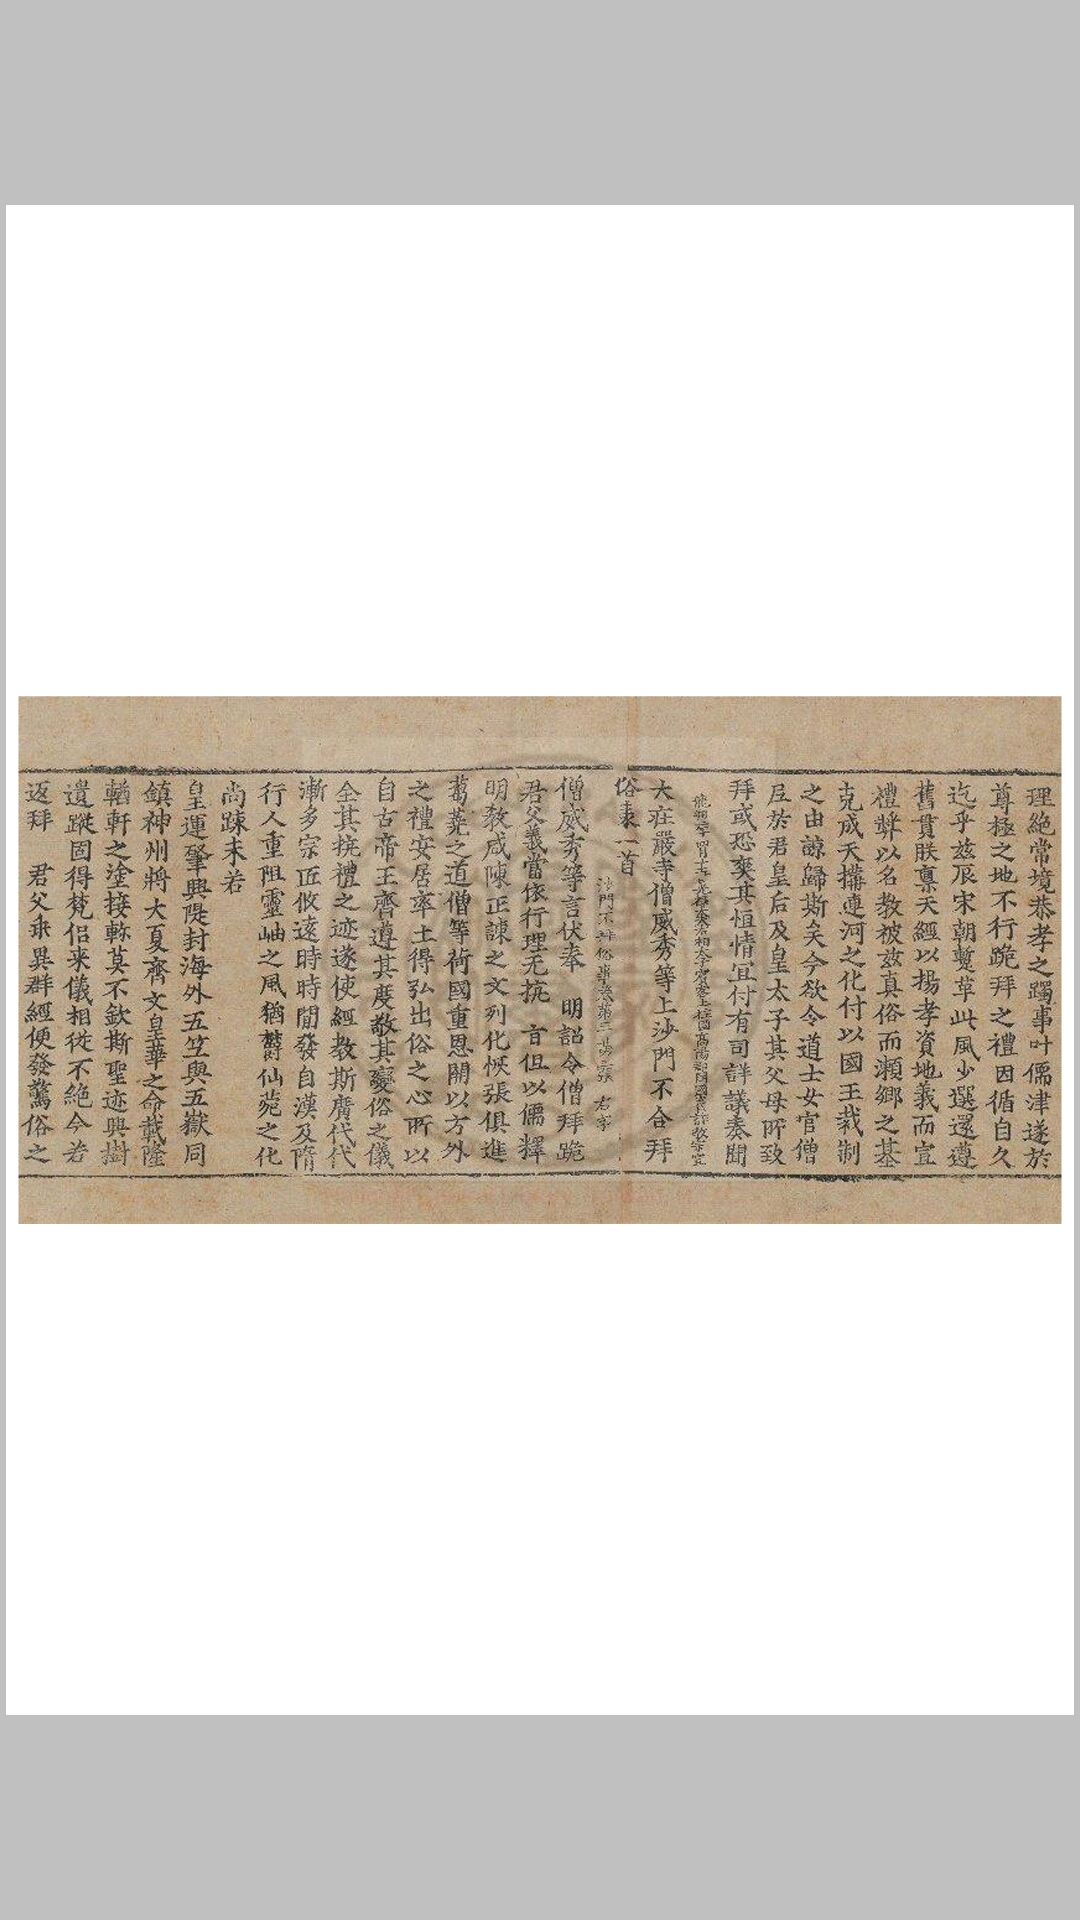 理絕常境恭孝之躅事叶儒津遂於
尊極之地不行跪拜之禮因循自久
迄乎茲辰宋朝蹔革此風少選還遵
舊貫朕稟天經以揚孝資地義而宣
禮弉以名教被茲真俗而瀨鄉之基
克成天構連河之化付以國王裁制
之由諒歸斯矣今欲令道士女官僧
尼於君皇后及皇太子其父母所致
拜或恐爽其恒情宜付有司詳議奏聞
大莊嚴寺僧威秀等上沙門不合拜
俗表一首
沙門不拜俗事卷第三 右字
僧威秀等言伏奉 明詔令僧拜跪
君父義當依行理无抗 旨但以儒釋
明教咸陳正諫之文列化恢張俱進
蒭蕘之道僧等荷國重恩開以方外
之禮安居率土得弘出俗之心所以
自古帝王齊遵其度敬其變俗之儀
全其抗禮之迹遂使經教斯廣代代
漸多宗匠攸遠時時閒發自漢及隋
行人重阻靈岫之風猶鬱仙菀之化
尚踈未若
皇運肇興隄封海外五竺與五嶽同
鎮神州將大夏齊文皇華之命載隆
輶軒之塗接軫莫不欽斯聖迹興樹
遺蹤固得梵侶来儀相從不絕今若
返拜 君父乖異群經便發驚俗之